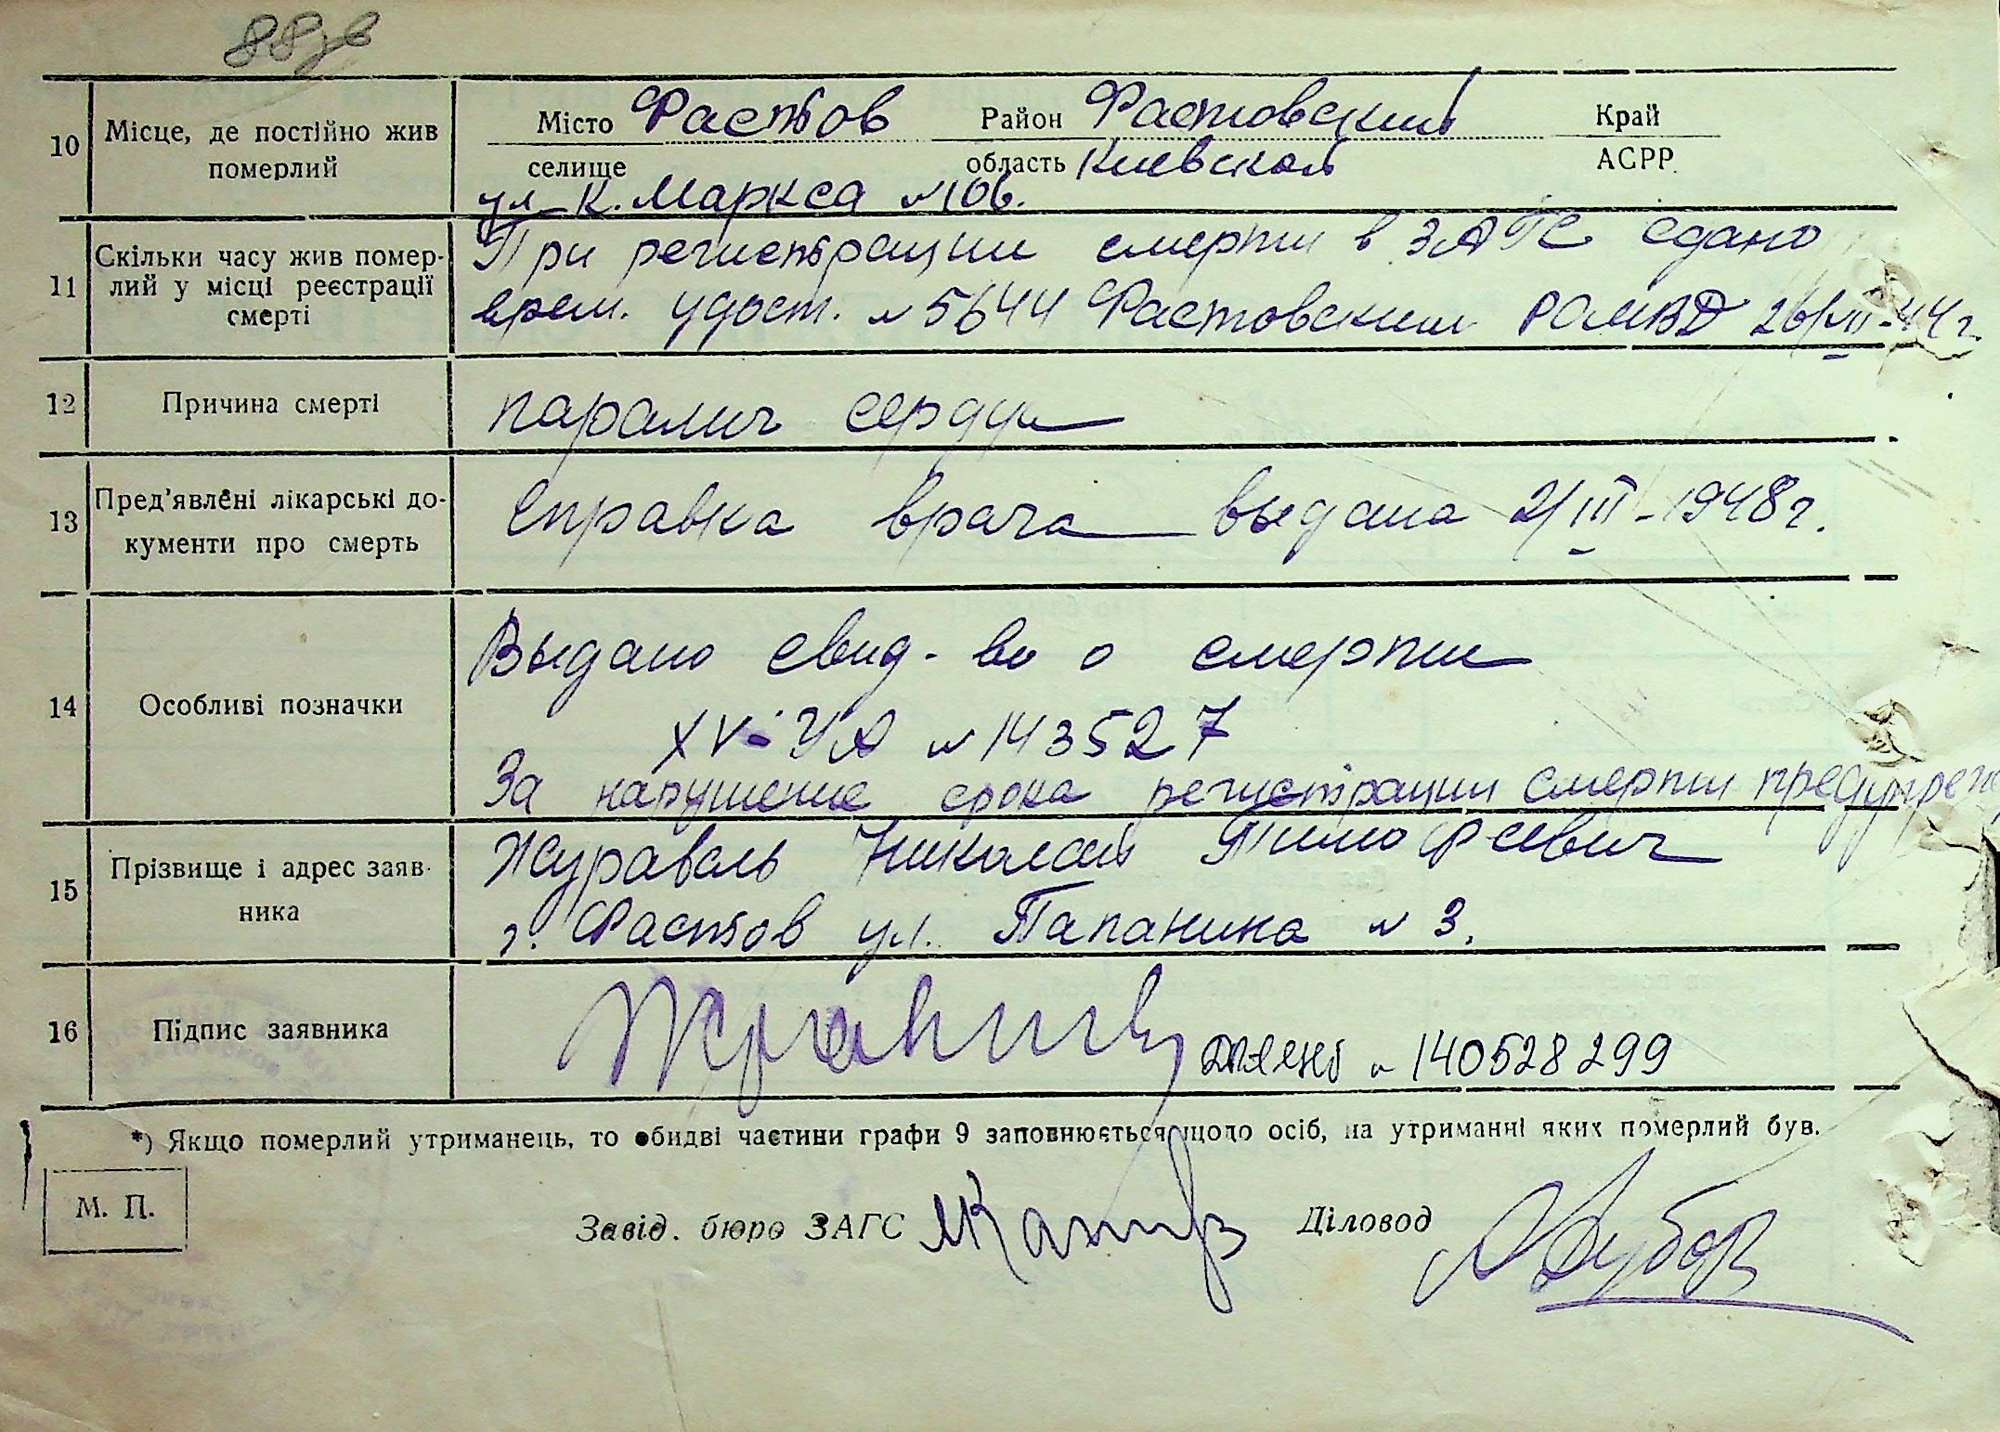 88 зв
10 Місце, де постійно жив померлий
Місто Фастов Район Фастовский Край
селище область Киевская АСРР
ул. К. Маркса № 106.
11 Скільки часу жив помер-
лий у місці реєстрації
смерті
При регистрации смерти в ЗАГС сдано
врем. удост. № 5644 Фастовским РОМВД 26/VII-44 г.
12 Причина смерті
паралич сердца
13 Пред'явлені лікарські до-
кументи про смерть
Справка врача выдана 2/III-1948 г.
14 Особливі позначки
Выдано свид-во о смерти
XV-УА № 143527
За нарушение срока регистрации смерти предупрежд
15 Прізвище і адрес заяв-
ника
Журавель Николай Тимофеевич
г. Фастов ул. Папанина № 3.
16 Підпис заявника
№ 140528299
*) Якщо померлий утриманець, то обидві частини графи 9 заповнюється щодо осіб, на утриманні яких померлий був.
М. П.
Завід. бюро ЗАГС Діловод